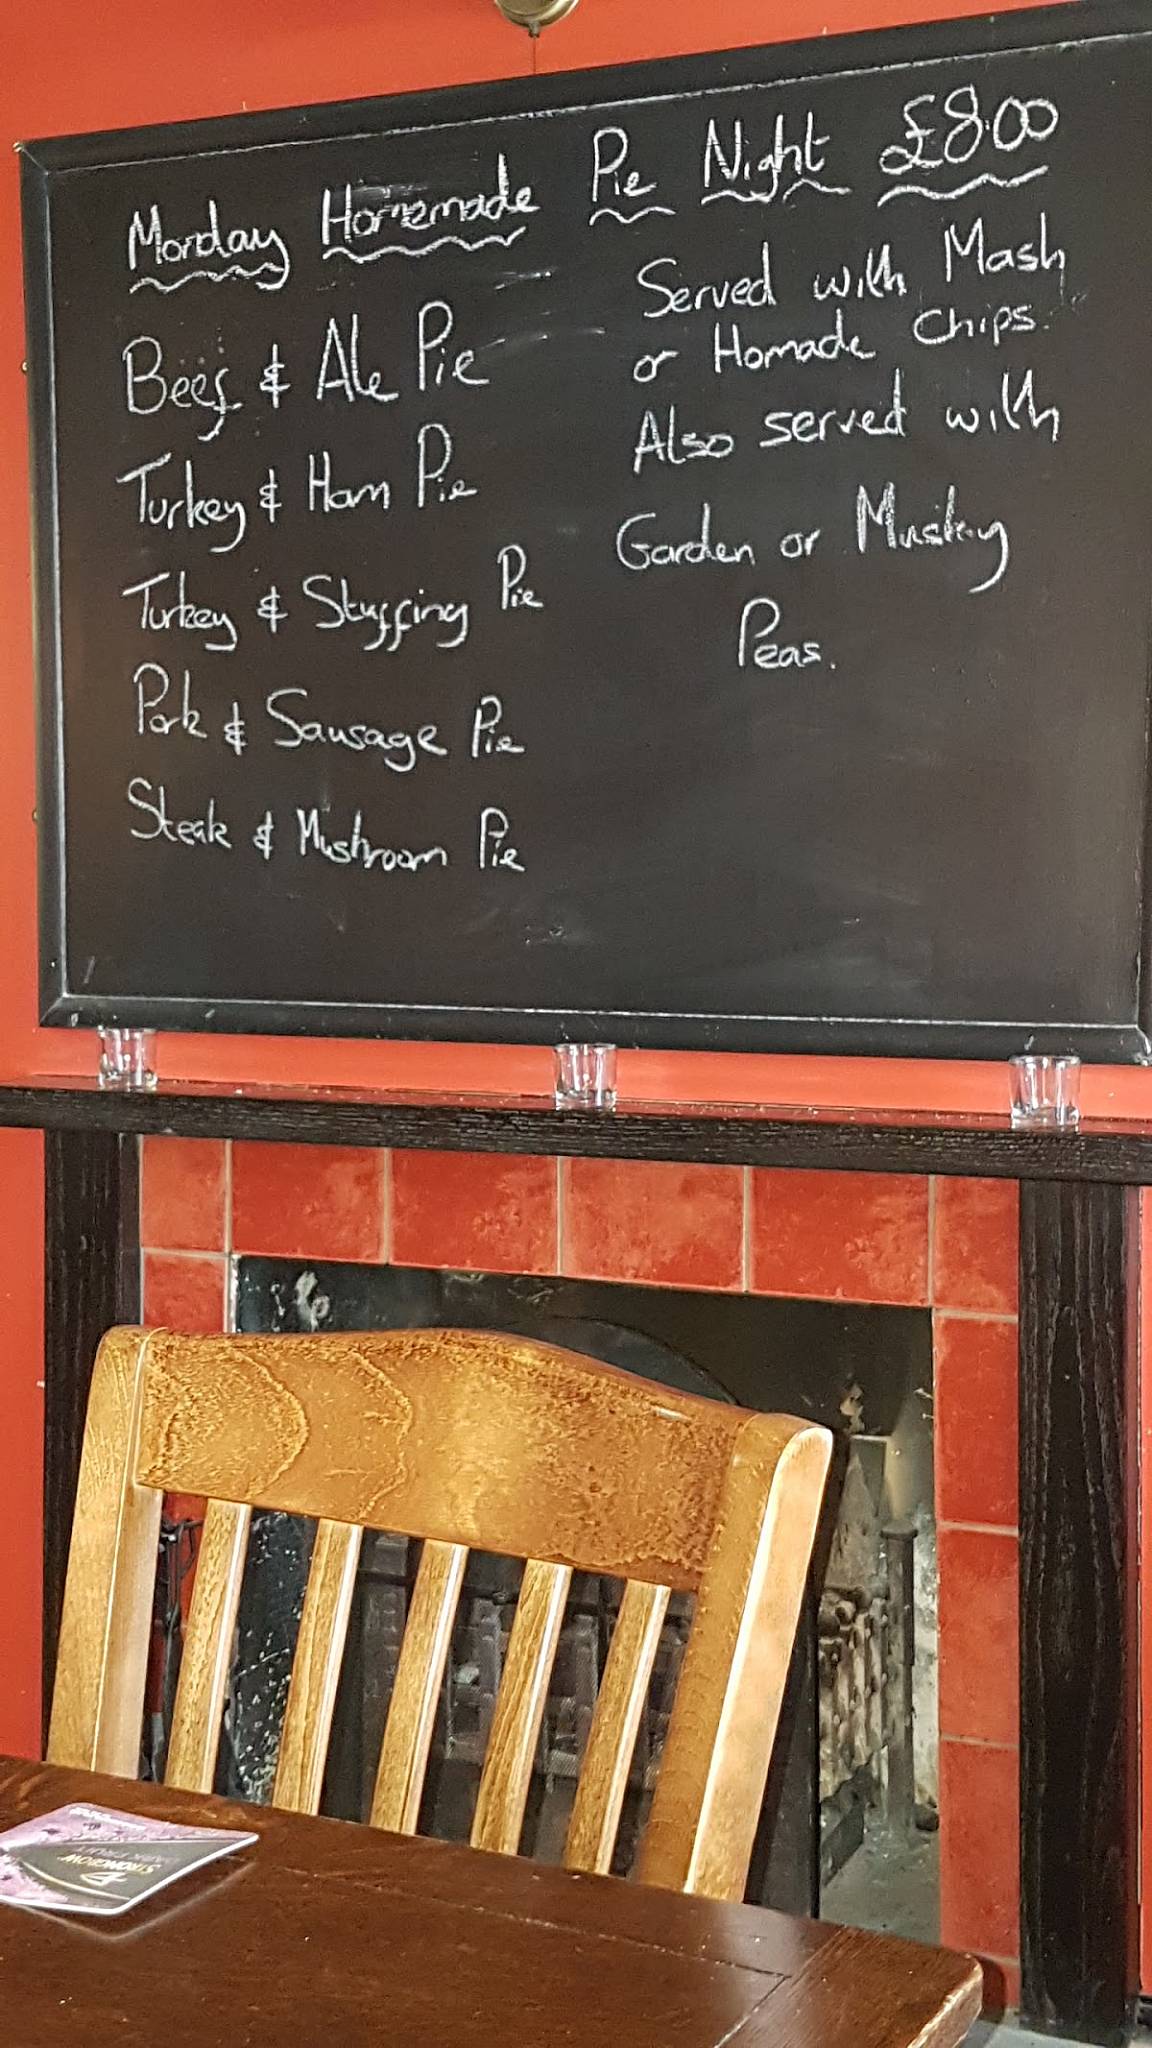 Monday Homemade Pie Night £8.00
Beef & Ale Pie
Turkey & Ham Pie
Turkey & Stuffing Pie
Pork & Sausage Pie
Steak & Mushroom Pie
Served with Mash
or Homade Chips.
Also served with
Garden or Mushy
Peas.
STRONGBOW
DARK FRUIT